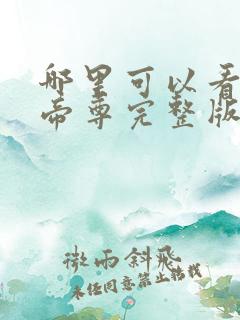 哪里可以看
帝尊完整版
微雨斜飛
未经同意禁止转载